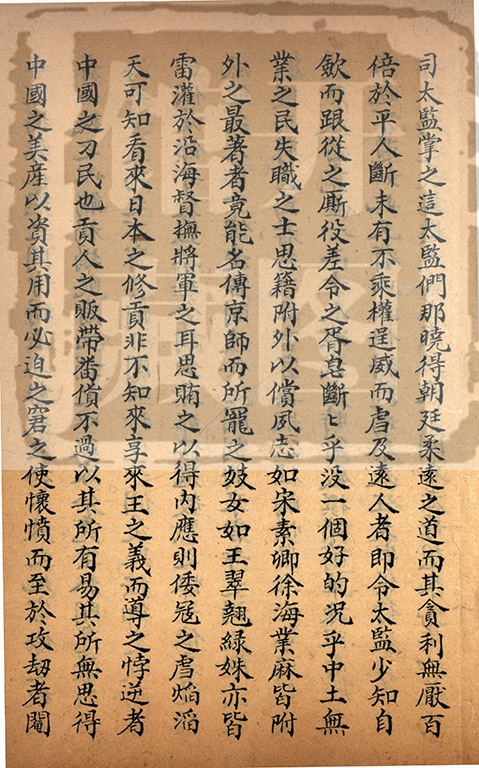 司太監掌之這太監們那曉得朝廷柔遠之道而其貪利無厭百
倍於平人斷未有不乘權逞威而虐及遠人者即令太監少知自
歛而跟從之厮役差令之胥皂斷〻乎没一個好的况乎中土無
業之民失職之士思藉附外以償夙志如宋素卿徐海業麻皆附
外之最著者竟能名傳京師而所寵之妓女如王翠翹綠姝亦皆
雷灌於沿海督撫將軍之耳思賄之以得内應則倭冦之虐焰滔
天可知看來日本之修貢非不知來享來王之義而導之悖逆者
中國之刁民也貢人之販帶畨債不過以其所有易其所無思得
中國之美産以資其用而必迫之窘之使懷憤而至於攻刼者閹